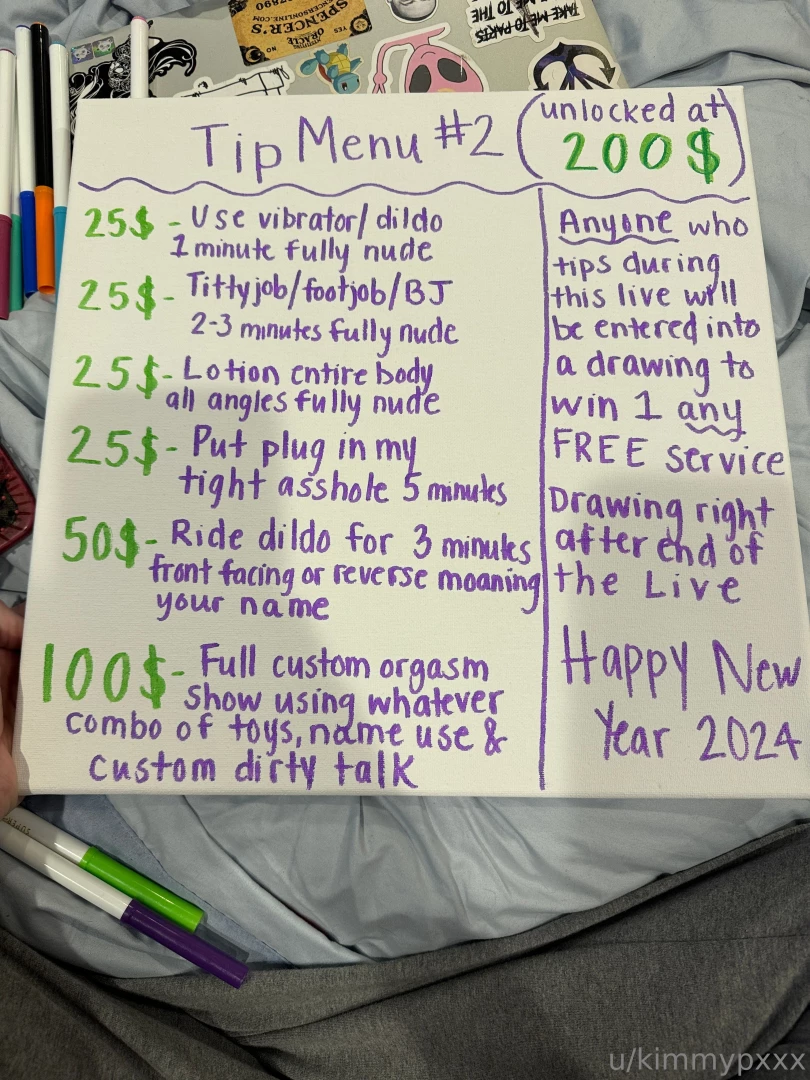 SPENCER'S
SPENCERSONLINE.COM
ORACLE
YES
NO
TAKE ME TO PARTS
Tip Menu #2
(unlocked at
200$)
25$ - Use vibrator/dildo
1 minute fully nude
25$ - Tittyjob/footjob/BJ
2-3 minutes fully nude
25$ - Lotion entire body
all angles fully nude
25$ - Put plug in my
tight asshole 5 minutes
50$ - Ride dildo for 3 minutes
front facing or reverse moaning
your name
100$ - Full custom orgasm
show using whatever
combo of toys, name use &
custom dirty talk
Anyone who
tips during
this live will
be entered into
a drawing to
win 1 any
FREE service
Drawing right
after end of
the Live
Happy New
Year 2024
u/kimmypxxx